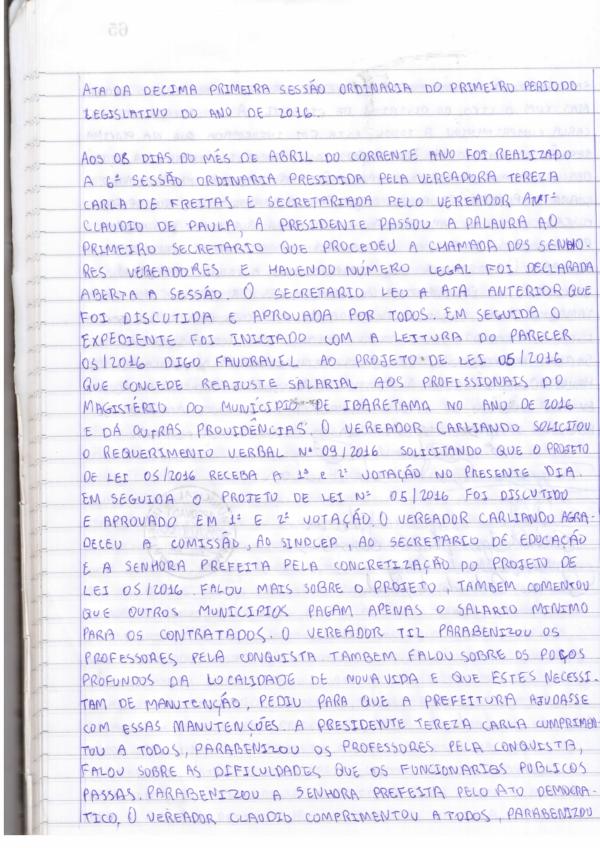 ATA DA DECIMA PRIMEIRA SESSÃO ORDINARIA DO PRIMEIRO PERIODO
LEGISLATIVO DO ANO DE 2016.
AOS 08 DIAS DO MÊS DE ABRIL DO CORRENTE ANO FOI REALIZADO
A 6ª SESSÃO ORDINARIA PRESIDIDA PELA VEREADORA TEREZA
CARLA DE FREITAS E SECRETARIADA PELO VEREADOR ANTº
CLAUDIO DE PAULA, A PRESIDENTE PASSOU A PALAVRA AO
PRIMEIRO SECRETARIO QUE PROCEDEU A CHAMADA DOS SENHO-
RES VEREADORES E HAVENDO NÚMERO LEGAL FOI DECLARADA
ABERTA A SESSÃO. O SECRETARIO LEO A ATA ANTERIOR QUE
FOI DISCUTIDA E APROVADA POR TODOS. EM SEGUIDA O
EXPEDIENTE FOI INICIADO COM A LEITURA DO PARECER
05/2016 DIGO FAVORAVEL AO PROJETO DE LEI 05/2016
QUE CONCEDE REAJUSTE SALARIAL AOS PROFISSIONAIS DO
MAGISTÉRIO DO MUNÍCIPIO DE IBARETAMA NO ANO DE 2016
E DÁ OUTRAS PROVIDÊNCIAS. O VEREADOR CARLIANDO SOLICITOU
O REQUERIMENTO VERBAL Nº 09/2016 SOLICITANDO QUE O PROJETO
DE LEI 05/2016 RECEBA A 1ª E 2ª VOTAÇÃO NO PRESENTE DIA.
EM SEGUIDA O PROJETO DE LEI Nº 05/2016 FOI DISCUTIDO
E APROVADO EM 1ª E 2ª VOTAÇÃO, O VEREADOR CARLIANDO AGRA-
DECEU A COMISSÃO, AO SINDLEP, AO SECRETARIO DE EDUCAÇÃO
E A SENHORA PREFEITA PELA CONCRETIZAÇÃO DO PROJETO DE
LEI 05/2016. FALOU MAIS SOBRE O PROJETO, TAMBEM COMENTOU
QUE OUTROS MUNICIPIOS PAGAM APENAS O SALARIO MINIMO
PARA OS CONTRATADOS. O VEREADOR TIL PARABENIZOU OS
PROFESSORES PELA CONQUISTA TAMBEM FALOU SOBRE OS POÇOS
PROFUNDOS DA LOCALIDADE DE NOVA VIDA E QUE ESTES NECESSI-
TAM DE MANUTENÇÃO, PEDIU PARA QUE A PREFEITURA AJUDASSE
COM ESSAS MANUTENÇÕES. A PRESIDENTE TEREZA CARLA CUMPRIMEN-
TOU A TODOS, PARABENIZOU OS PROFESSORES PELA CONQUISTA,
FALOU SOBRE AS DIFICULDADES QUE OS FUNCIONARIOS PUBLICOS
PASSAS. PARABENIZOU A SENHORA PREFEITA PELO ATO DEMOCRA-
TICO, O VEREADOR CLAUDIO COMPRIMENTOU A TODOS, PARABENIZOU